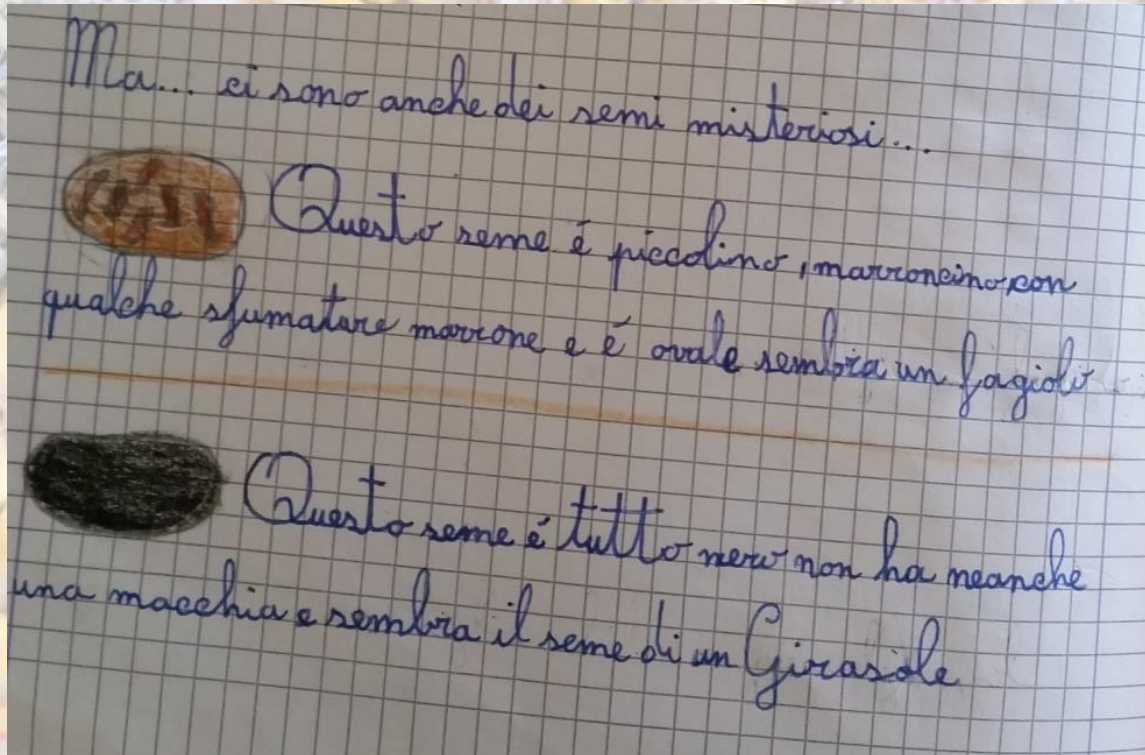 Ma... ci sono anche dei semi misteriosi...
Questo seme é piccolino, marroncino, con
qualche sfumature marrone e é ovale sembra un fagiolo
Questo seme é tutto nero non ha neanche
una macchia e sembra il seme di un Girasole